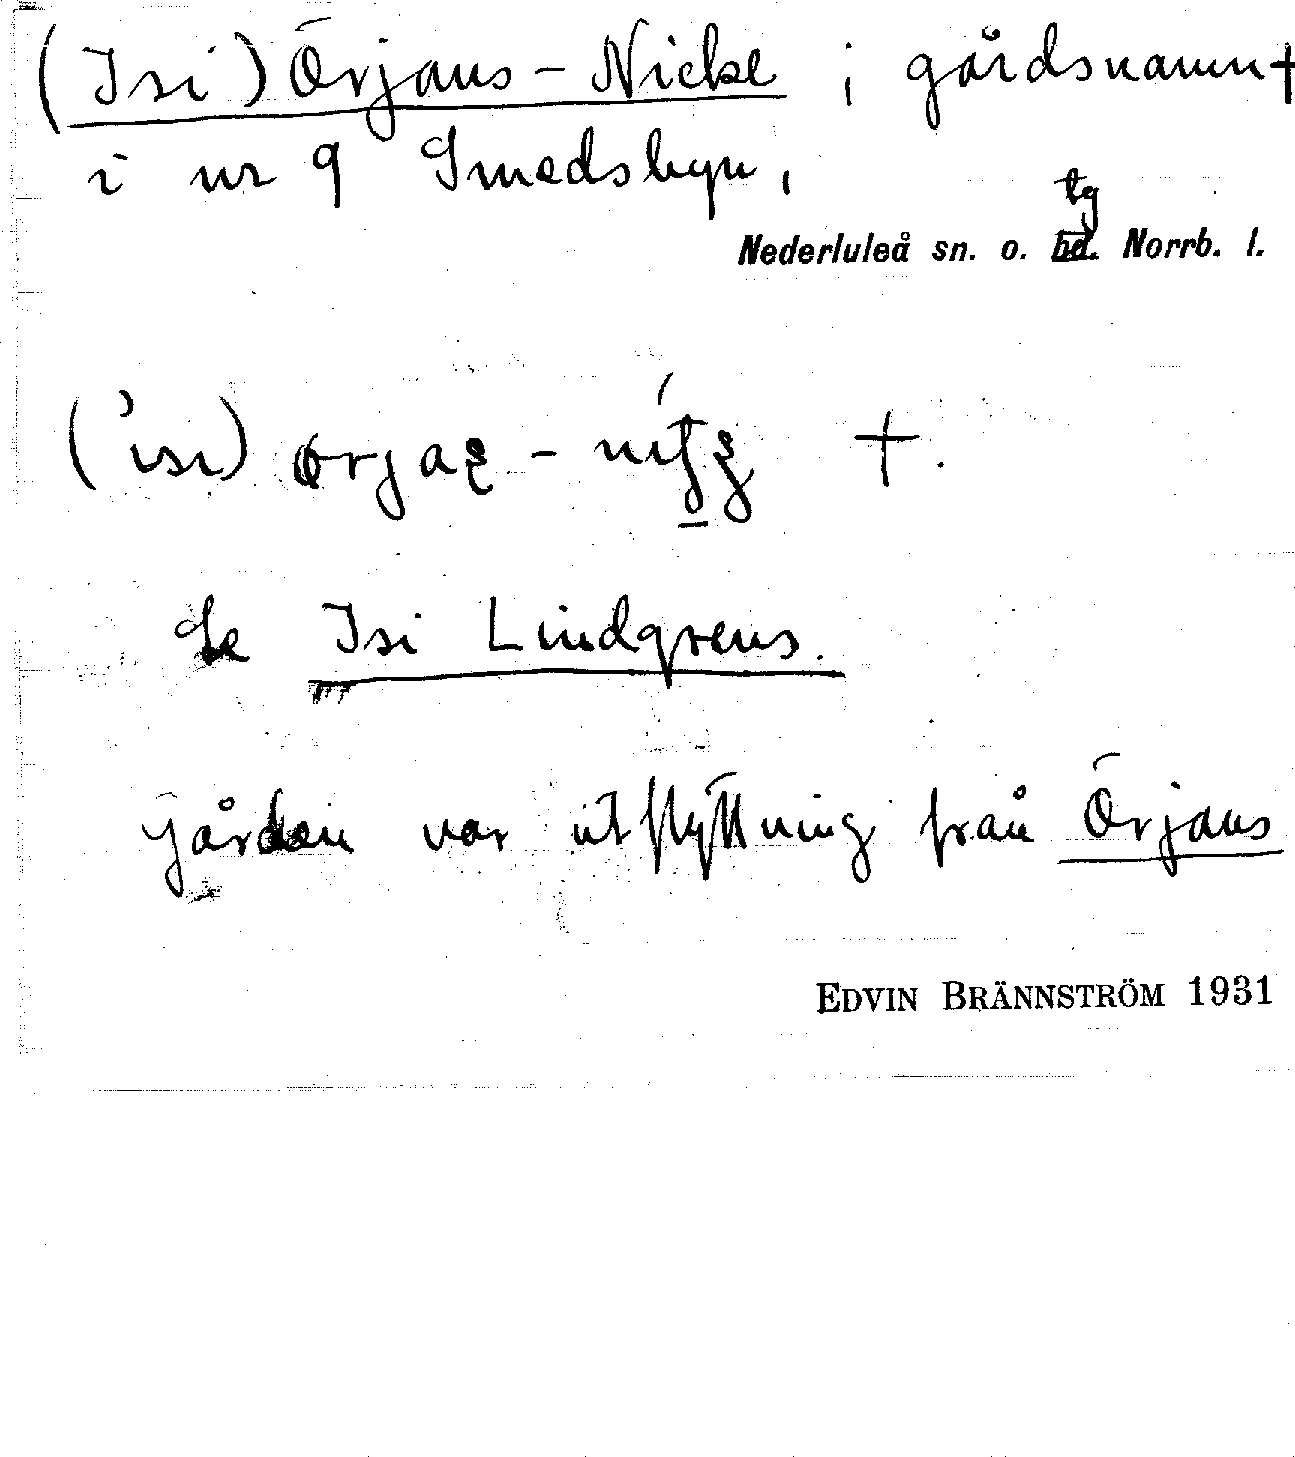 (Isi) Örjans-Nicke ; gårdsnamn †
i nr 9 Smedsbyn,
tg
Nederluleå sn. o. hd. Norrb. l.
†.
Se Isi Lindgrens.
Gården var utflyttning från Örjans
EDVIN BRÄNNSTRÖM 1931